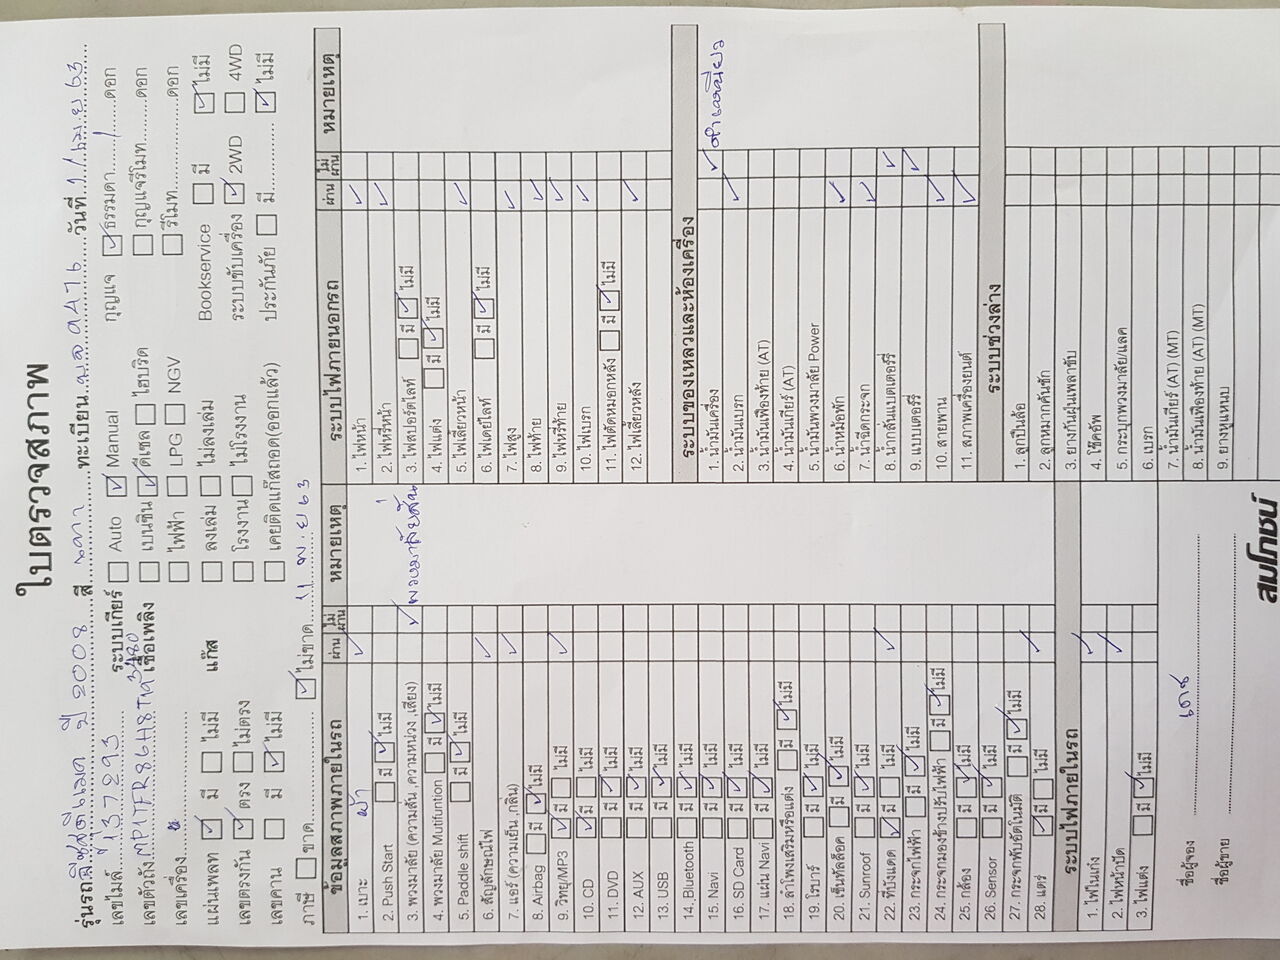 ใบตรวจสภาพ
รุ่นรถ อีซูซุดีแมค ปี 2008 สี เทา ทะเบียน 9476 วันที่ 1/เม.ย 63
เลขไมล์ 137293 ระบบเกียร์ Auto Manual กุญแจ ธรรมดา 1 ดอก
เลขตัวถัง MP1TFR86H8T193480 เชื้อเพลิง เบนซิน ดีเซล ไฮบริด กุญแจรีโมท ดอก
เลขเครื่อง ไฟฟ้า LPG NGV รีโมท ดอก
แผ่นเพลท มี ไม่มี แก๊ส ลงเล่ม ไม่ลงเล่ม Bookservice มี ไม่มี
เลขตรงกัน ตรง ไม่ตรง โรงงาน ไม่โรงงาน ระบบขับเครื่อง 2WD 4WD
เลขคาน มี ไม่มี เคยติดแก๊สถอด(ออกแล้ว) ประกันภัย มี ไม่มี
ภาษี ขาด ไม่ขาด 11 พ.ย 63
ข้อมูลสภาพภายในรถ ผ่าน ไม่ผ่าน หมายเหตุ
1. เบาะ ผ้า
2. Push Start มี ไม่มี
3. พวงมาลัย (ความสั่น ,ความหน่วง ,เสียง) พวงมาลัยสั่น
4. พวงมาลัย Mutifuntion มี ไม่มี
5. Paddle shift มี ไม่มี
6. สัญลักษณ์ไฟ
7. แอร์ (ความเย็น ,กลิ่น)
8. Airbag มี ไม่มี
9. วิทยุ/MP3 มี ไม่มี
10. CD มี ไม่มี
11. DVD มี ไม่มี
12. AUX มี ไม่มี
13. USB มี ไม่มี
14. Bluetooth มี ไม่มี
15. Navi มี ไม่มี
16. SD Card มี ไม่มี
17. แผ่น Navi มี ไม่มี
18. ลำโพงเสริมหรือแต่ง มี ไม่มี
19. โรบาร์ มี ไม่มี
20. เซ็นทัลล็อค มี ไม่มี
21. Sunroof มี ไม่มี
22. ที่บังแดด มี ไม่มี
23. กระจกไฟฟ้า มี ไม่มี
24. กระจกมองข้างปรับไฟฟ้า มี ไม่มี
25. กล้อง มี ไม่มี
26. Sensor มี ไม่มี
27. กระจกพับอัตโนมัติ มี ไม่มี
28. แตร มี ไม่มี
ระบบไฟภายในรถ
1. ไฟในเก๋ง
2. ไฟหน้าปัด
3. ไฟแต่ง มี ไม่มี
ระบบไฟภายนอกรถ ผ่าน ไม่ผ่าน หมายเหตุ
1. ไฟหน้า
2. ไฟหรี่หน้า
3. ไฟสปอร์ตไลท์ มี ไม่มี
4. ไฟแต่ง มี ไม่มี
5. ไฟเลี้ยวหน้า
6. ไฟเดย์ไลท์ มี ไม่มี
7. ไฟสูง
8. ไฟท้าย
9. ไฟหรี่ท้าย
10. ไฟเบรก
11. ไฟตัดหมอกหลัง มี ไม่มี
12. ไฟเลี้ยวหลัง
ระบบของเหลวและห้องเครื่อง
1. น้ำมันเครื่อง ดำเหนียว
2. น้ำมันเบรก
3. น้ำมันเฟืองท้าย (AT)
4. น้ำมันเกียร์ (AT)
5. น้ำมันพวงมาลัย Power
6. น้ำหม้อพัก
7. น้ำฉีดกระจก
8. น้ำกลั่นแบตเตอร์รี่
9. แบบเตอร์รี่
10. สายพาน
11. สภาพเครื่องยนต์
ระบบช่วงล่าง
1. ลูกปืนล้อ
2. ลูกหมากคันชัก
3. ยางกันฝุ่นเพลาขับ
4. โช๊คอัพ
5. กระปุกพวงมาลัย/แลค
6. เบรก
7. น้ำมันเกียร์ (AT) (MT)
8. น้ำมันเฟืองท้าย (AT) (MT)
9. ยางหูแหนบ
ชื่อผู้จอง เดช
ชื่อผู้ขาย
สมโภชน์